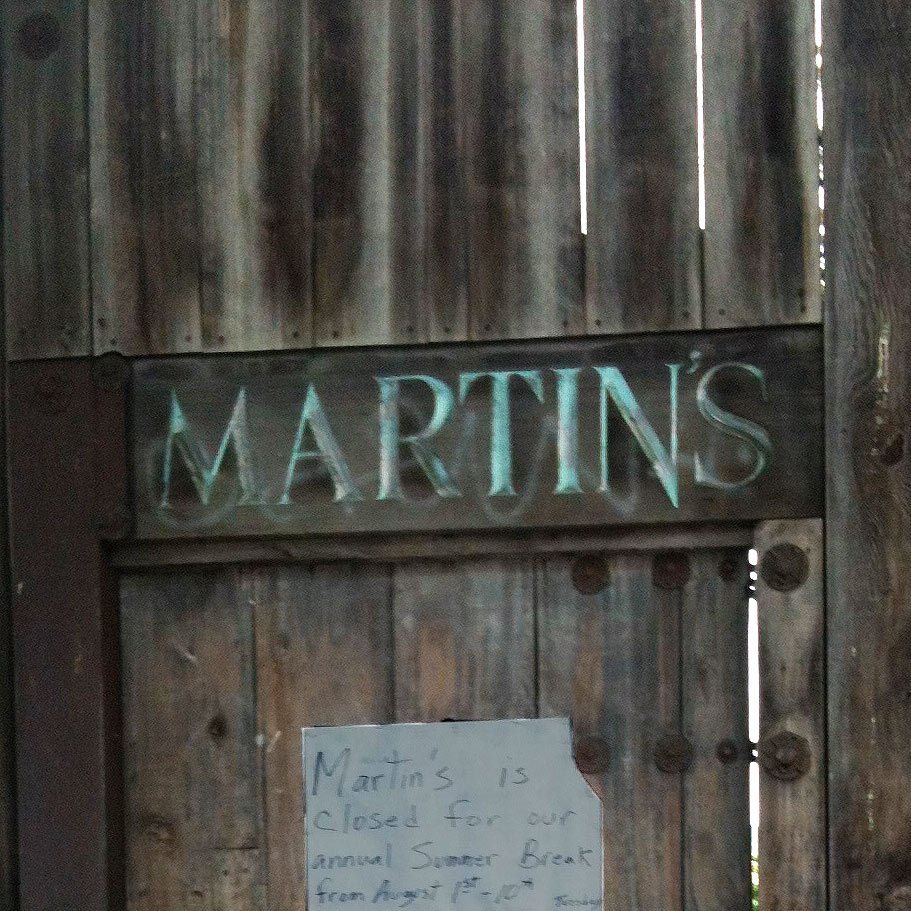 MARTIN'S
Martin's is
closed for our
annual Summer Break
from August 1st - 10th